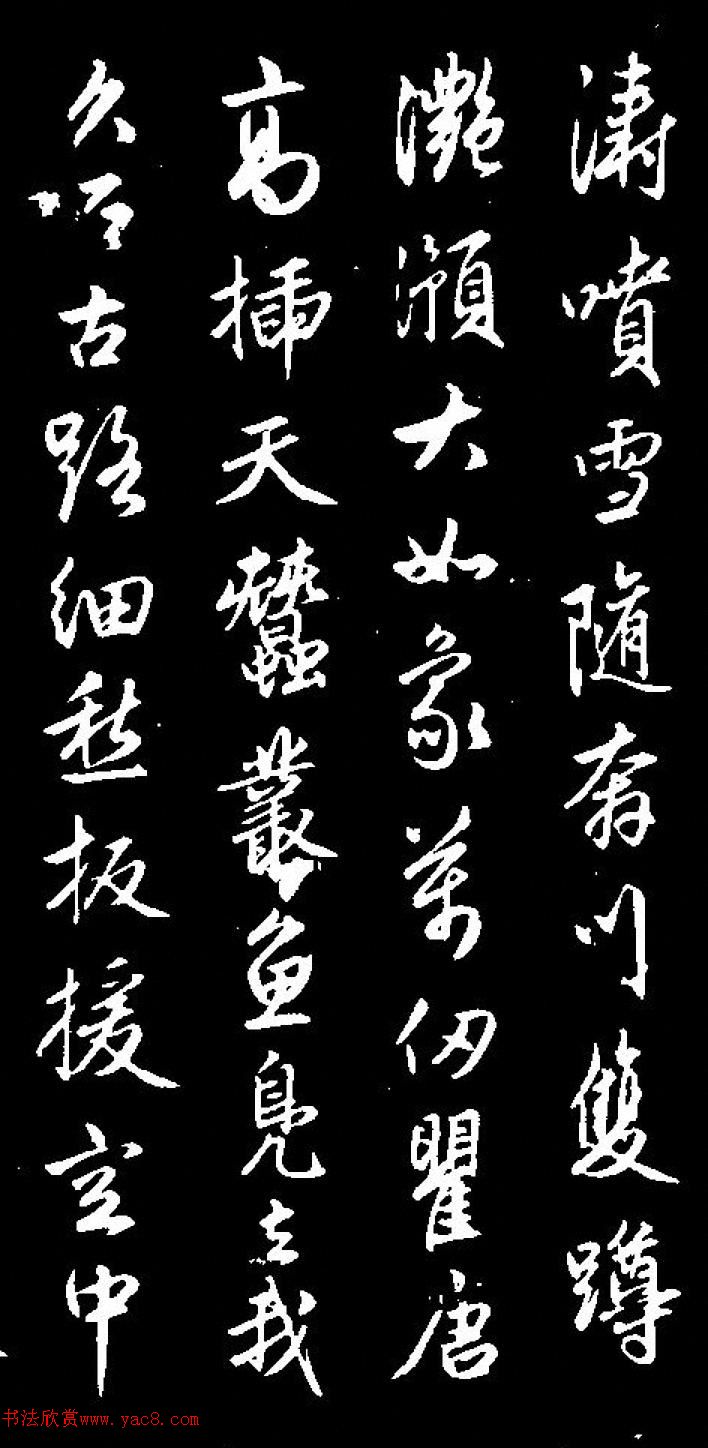 濤噴雪隨奔川雙蹲
灩澦大如象萬仞瞿唐
高插天蠶叢魚鳧去我
久古路細愁扳援空中
书法欣赏www.yac8.com